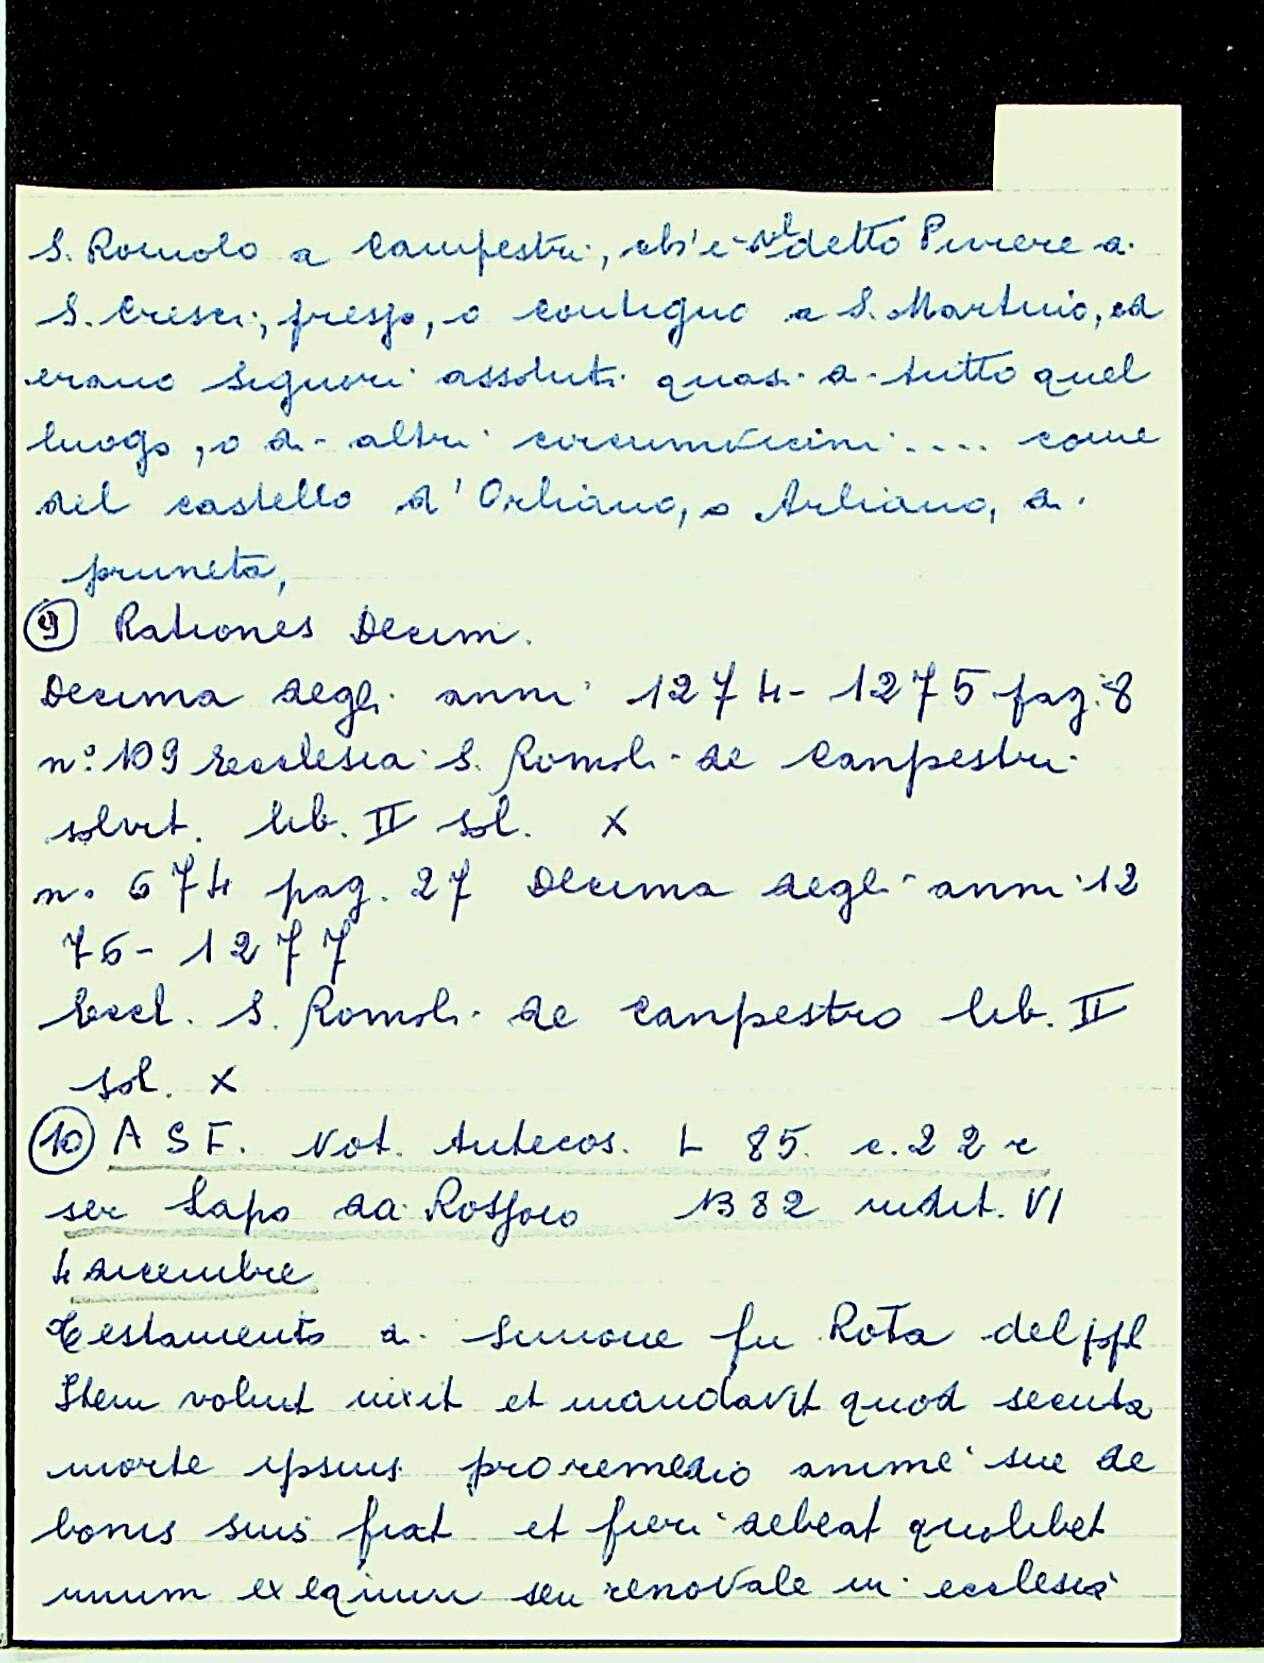 S. Romolo a Campestri, ch'è nel detto Piviere di
S. Cresci, presso, o contiguo a S. Martino, ed
erano signori assoluti quasi di tutto quel
luogo, o di altri circumvicini .... come
del castello d'Orliano, o Arliano, di
pruneta,
9 Rationes Decim.
Decima degli anni 1274-1275 pag. 8
n° 109 Ecclesia S. Romoli de Canpestri
solvit. lib. II sol. X
n. 674 pag. 27 Decima degli anni 12
76-1277
Eccl. S. Romoli de Canpestro lib. II
sol. X
10 A S F. Not. Antecos. L 85. c. 22 r
ser Lapo da Rossoio 1382 indit. VI
4 dicembre
Testamento di Simone fu Rota del ppl
Item voluit iuxit et mandavit quod secuta
morte ipsius pro remedio anime sue de
bonis suis fiat et fieri debeat quolibet
unum exequium seu renovale in ecclesia